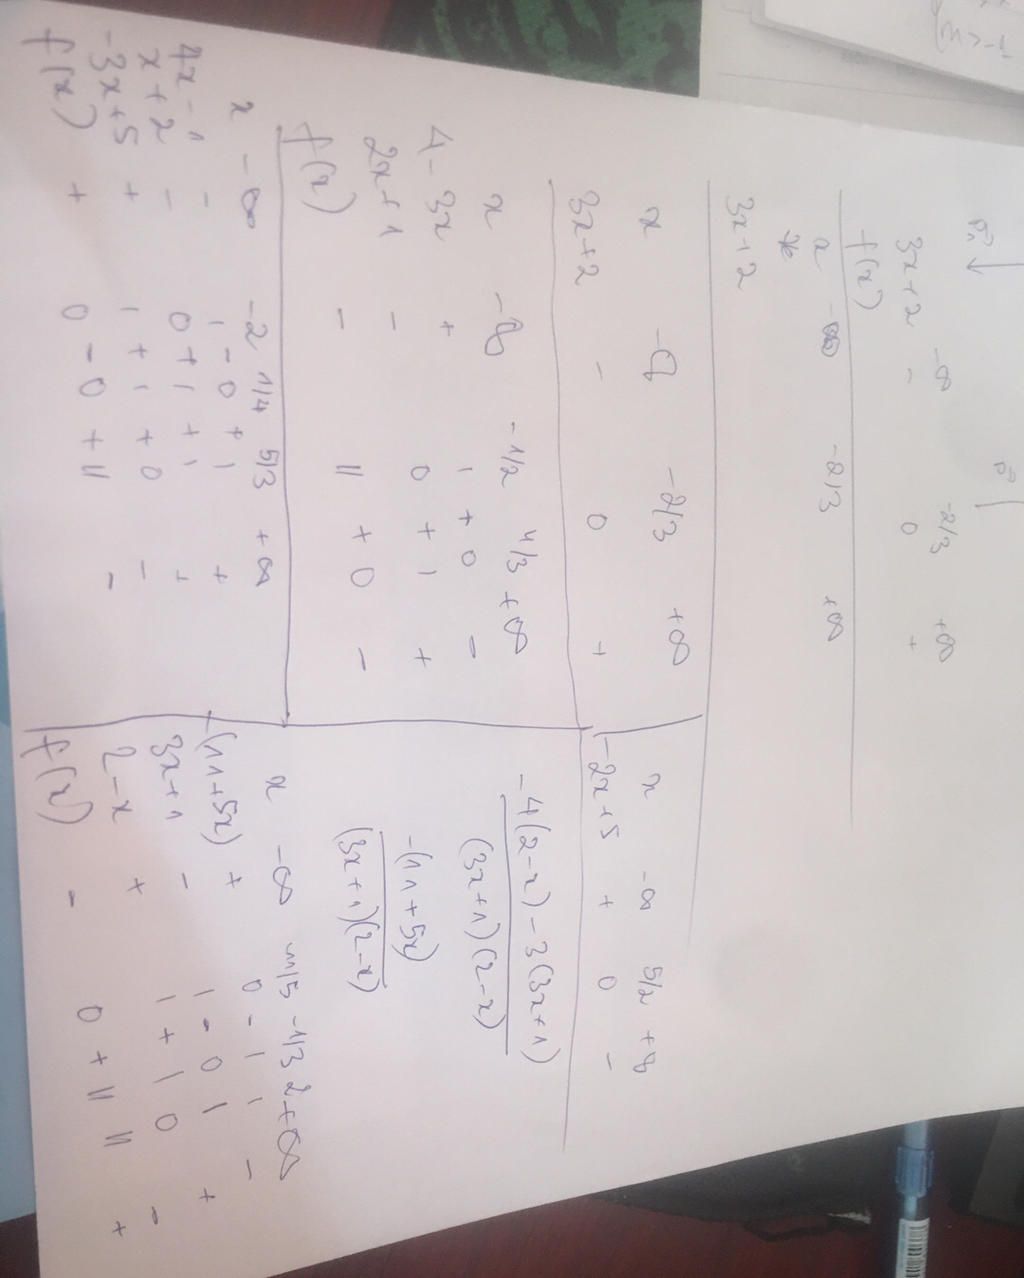 3x+2 -∞ -2/3 +∞
- 0 +
f(x)
x -∞ -2/3 +∞
3x+2
x -∞ -2/3 +∞
3x+2 - 0 +
x -∞ 5/2 +∞
-2x+5 + 0 -
x -∞ -1/2 4/3 +∞
4-3x + | + 0 -
2x+1 - 0 + | +
f(x) - || + 0 -
-4(2-x)-3(3x+1)
(3x+1)(2-x)
-(11+5x)
(3x+1)(2-x)
x -∞ -2 1/4 5/3 +∞
4x-1 - | - 0 + | +
x+2 - 0 + | + | +
-3x+5 + | + | + 0 -
f(x) + 0 - 0 + || -
x -∞ -11/5 -1/3 2 +∞
-(11+5x) + 0 - | | -
3x+1 - | - 0 | +
2-x + | + | 0 -
f(x) - 0 + || || +